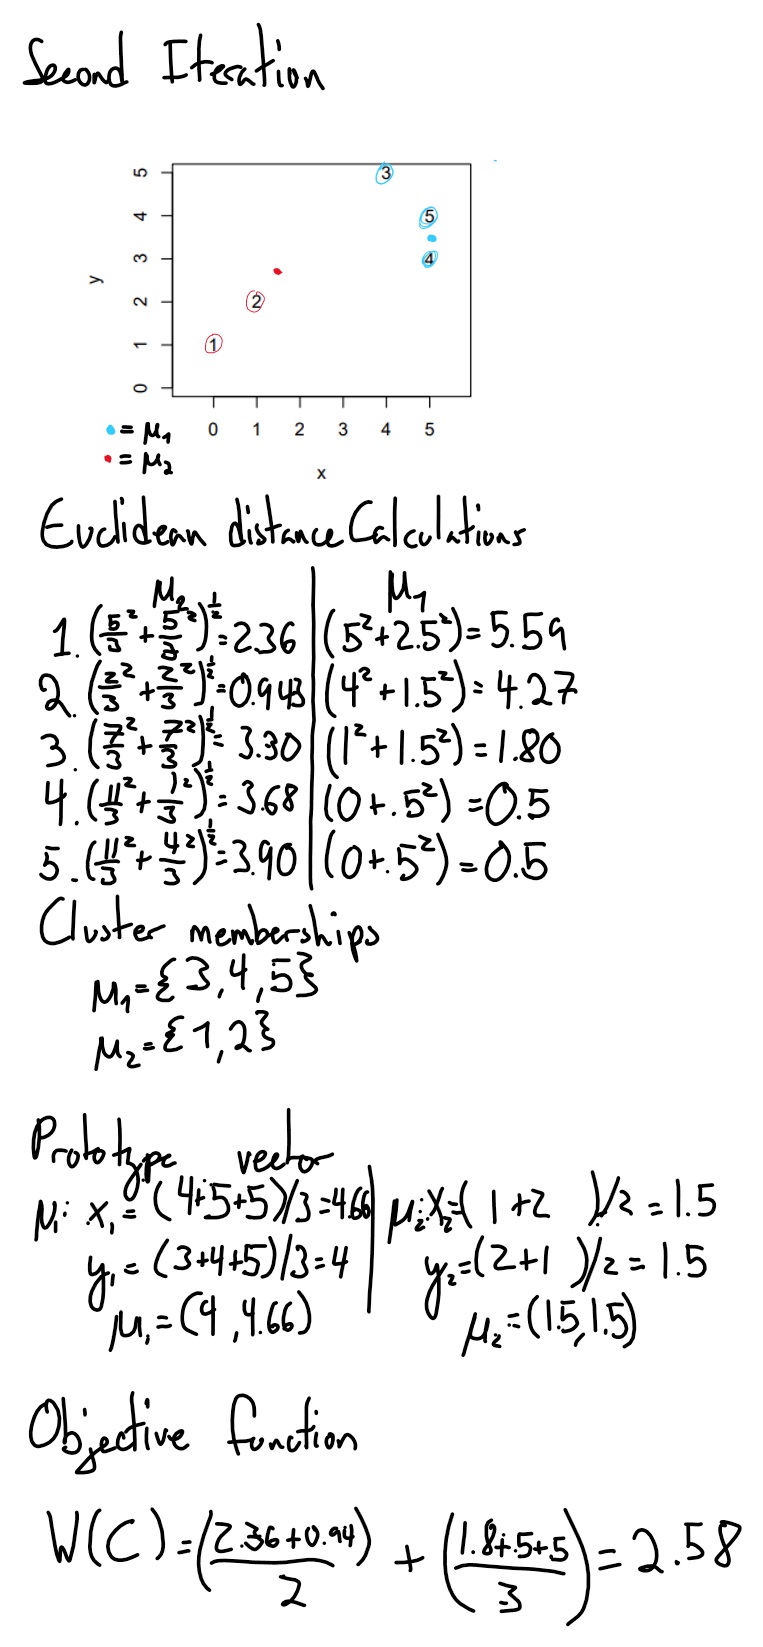 Second Iteration
5
4
3
2
1
0
y
3
5
4
2
1
0 1 2 3 4 5
x
= μ₁
= μ₂
Euclidean distance Calculations
μ₂ | μ₁
1. (5/3² + 5/3²)^½ = 2.36 | (5² + 2.5²) = 5.59
2. (2/3² + 2/3²)^½ = 0.943 | (4² + 1.5²) = 4.27
3. (7/3² + 7/3²)^½ = 3.30 | (1² + 1.5²) = 1.80
4. (11/3² + 1/3²)^½ = 3.68 | (0 + .5²) = 0.5
5. (11/3² + 4/3²)^½ = 3.90 | (0 + .5²) = 0.5
Cluster memberships
μ₁ = {3, 4, 5}
μ₂ = {1, 2}
Prototype vector
μ₁: x₁ = (4+5+5)/3 = 4.66 | μ₂: x₂ = (1+2)/2 = 1.5
y₁ = (3+4+5)/3 = 4 | y₂ = (2+1)/2 = 1.5
μ₁ = (4, 4.66) | μ₂ = (1.5, 1.5)
Objective function
W(C) = ((2.36+0.94)/2) + ((1.8+.5+5)/3) = 2.58